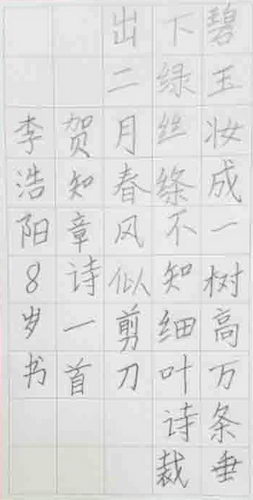 碧玉妆成一树高万条垂
下绿丝绦不知细叶诗裁
出二月春风似剪刀
贺知章诗一首
李浩阳8岁书